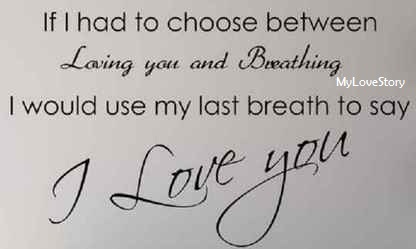 If I had to choose between
Loving you and Breathing
MyLoveStory
I would use my last breath to say
I Love you